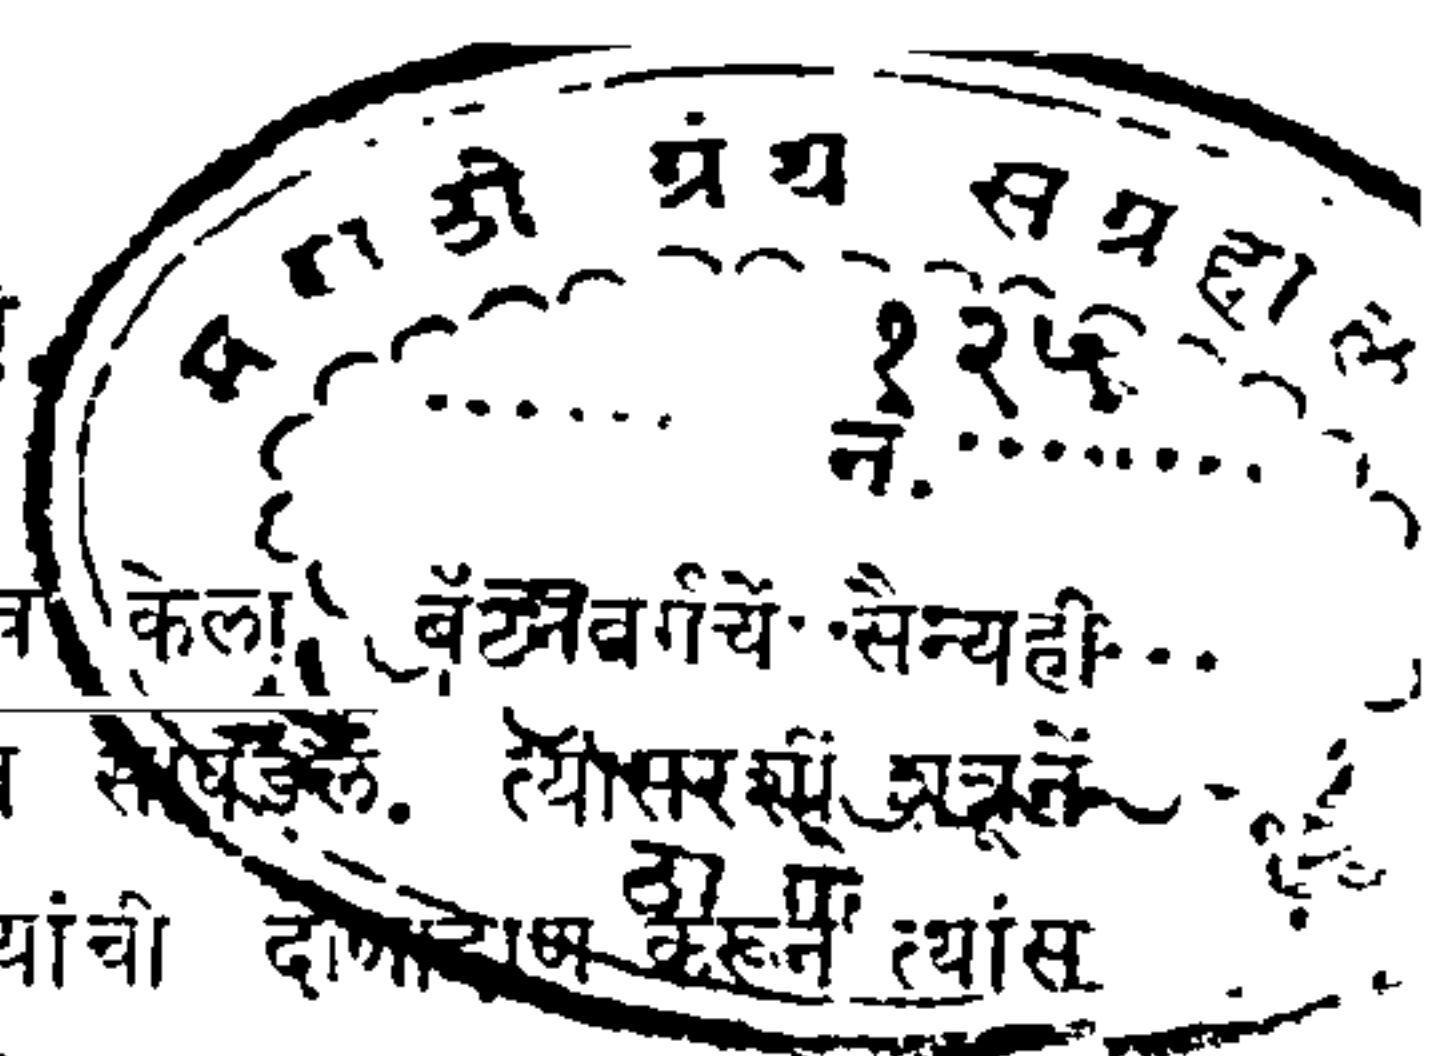 मराठी ग्रंथ संग्रहालय
१२५
नं.
केला बॅटनबर्गचें सैन्यही
सांपडलें. त्यासरशीं शत्रूनें
ठाणें
यांची दाणादाण करून त्यांस